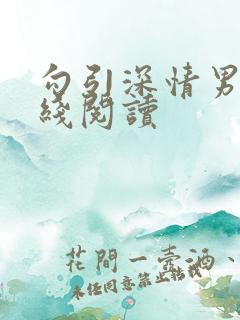 勾引深情男
綫閱讀
花間一壺酒、
未經同意禁止轉載